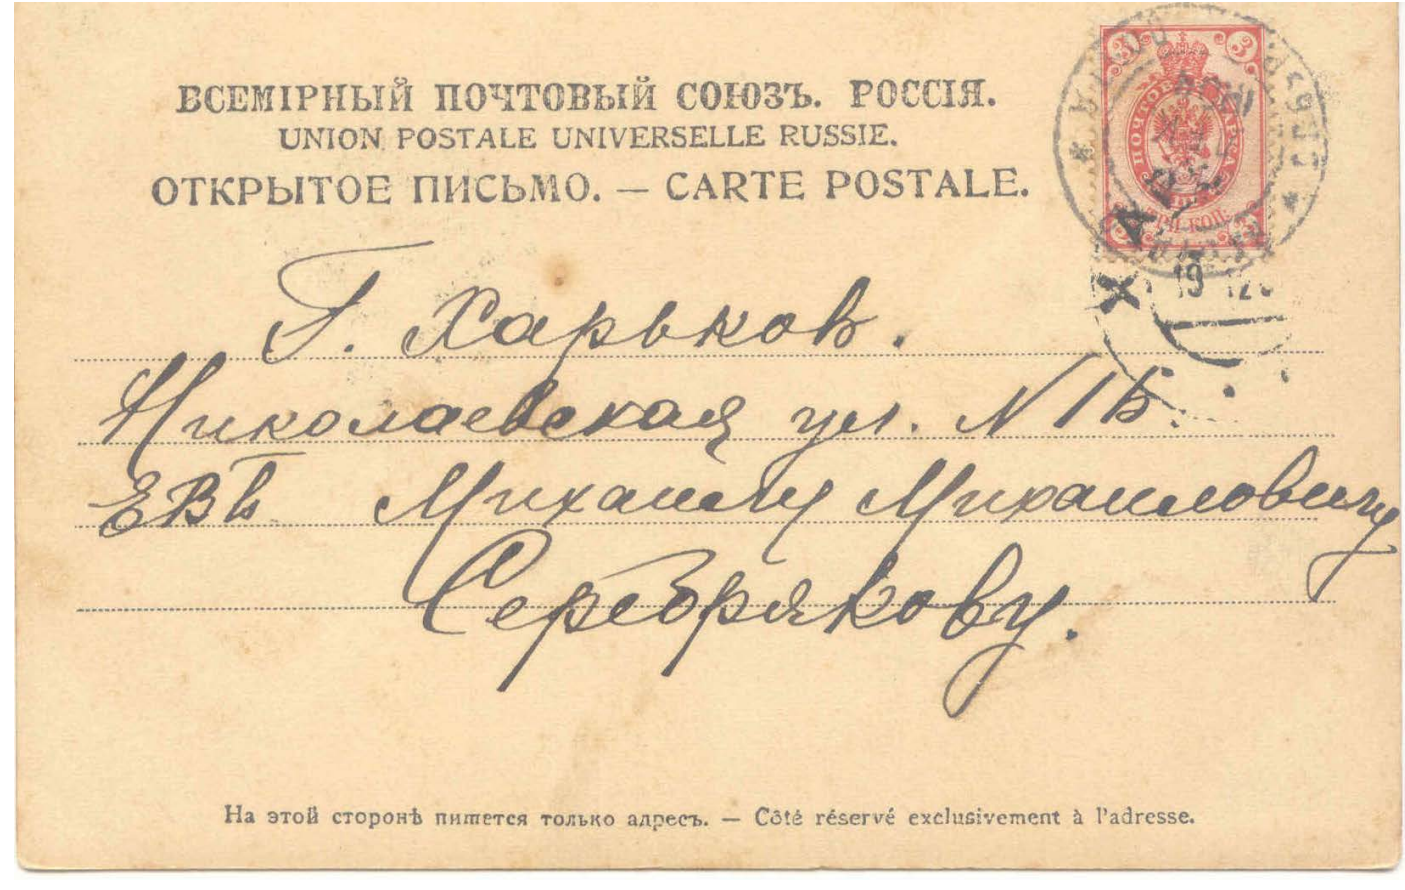 ВСЕМІРНЫЙ ПОЧТОВЫЙ СОЮЗЪ. РОССІЯ.
UNION POSTALE UNIVERSELLE RUSSIE.
ОТКРЫТОЕ ПИСЬМО. — CARTE POSTALE.
3 3
ПОЧТОВАЯ МАРКА
ТРИ КОП.
Г. Харьков.
19
Николаевская ул. N 1Б.
ЕВБ Михаилу Михаиловичу
Серебрякову.
На этой сторонѣ пишется только адресъ. — Côté réservé exclusivement à l'adresse.